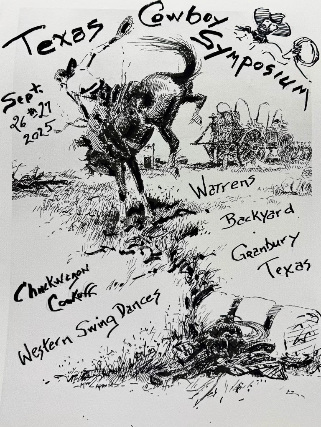 Texas Cowboy
Symposium
Sept.
26 & 27
2025
Warrens
Backyard
Granbury
Texas
Chuckwagon
Cookoff
Western Swing Dances